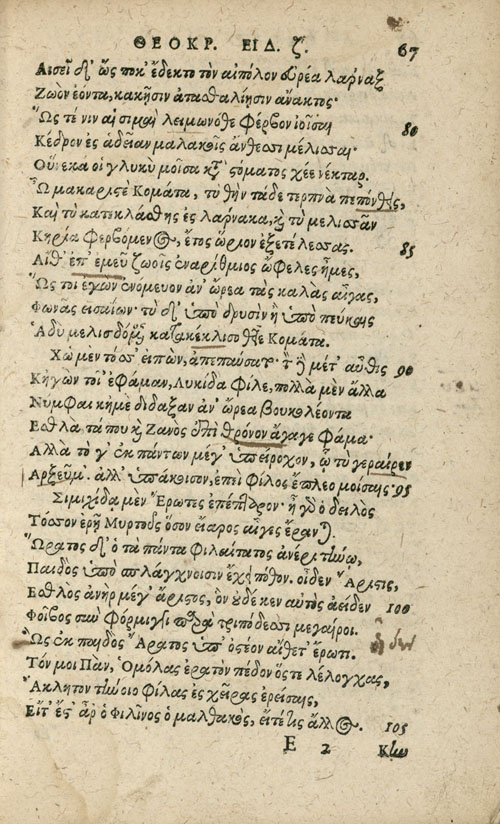 ΘΕΟΚΡ. ΕΙΔ. ζ. 67
Αισεῖ δ' ὥς ποκ' ἔδεκτο τὸν αἰπόλον εὐρέα λάρναξ
Ζωὸν ἐόντα, κακῇσιν ἀτασθαλίῃσιν ἄνακτος·
Ὥς τέ νιν αἱ σιμαὶ λειμωνόθε φέρβον ἰοῖσαι 80
Κέδρον ἐς ἁδεῖαν μαλακοῖς ἄνθεσσι μέλισσαι·
Οὕνεκά οἱ γλυκὺ μοῖσα κατὰ στόματος χέε νέκταρ.
Ὦ μακαριστὲ Κομάτα, τύ θην τάδε τερπνὰ πεπόνθης,
Καὶ τὺ κατεκλάσθης ἐς λάρνακα, καὶ τὺ μελισσᾶν
Κηρία φερβόμενος, ἔτος ὥριον ἐξετέλεσσας. 85
Αἴθ' ἐπ' ἐμεῦ ζωοῖς ἐναρίθμιος ὤφελες ἦμες,
Ὥς τοι ἐγὼν ἐνόμευον ἀν' ὤρεα τὰς καλὰς αἶγας,
Φωνᾶς εἰσαΐων· τὺ δ' ὑπὸ δρυσὶν ἢ ὑπὸ πεύκαις
Ἁδὺ μελισδόμενος κατακέκλισο θεῖε Κομάτα.
Χὠ μὲν τόσσ' εἰπὼν, ἀπεπαύσατο· τὸν δὲ μέτ' αὖθις 90
Κἠγὼν τοῖ' ἐφάμαν, Λυκίδα φίλε, πολλὰ μὲν ἄλλα
Νύμφαι κἠμὲ δίδαξαν ἀν' ὤρεα βουκολέοντα
Ἐσθλὰ τά που καὶ Ζανὸς ἐπὶ θρόνον ἄγαγε φάμα·
Ἀλλὰ τό γ' ἐκ πάντων μέγ' ὑπείροχον, ᾧ τυ γεραίρεν
Ἀρξεῦμ'. ἀλλ' ὑπάκουσον, ἐπεὶ φίλος ἔπλεο μοίσαις. 95
Σιμιχίδᾳ μὲν Ἔρωτες ἐπέπταρον· ἦ γὸ ὁ δειλὸς
Τόσσον ἐρῇ Μυρτοῦς ὅσον εἴαρος αἶγες ἔρανται.
Ὤρατος δ' ὁ τὰ πάντα φιλαίτατος ἀνέρι τήνῳ,
Παιδὸς ὑπὸ σπλάγχνοισιν ἔχει πόθον. οἶδεν Ἄριστις,
Ἐσθλὸς ἀνὴρ μέγ' ἄριστος, ὃν οὐδέ κεν αὐτὸς ἀείδεν 100
Φοῖβος σὺν φόρμιγγι παρὰ τριπόδεσσι μεγαίροι.
Ὡς ἐκ παιδὸς Ἄρατος ὑπ' ὀστέον αἴθετ' ἔρωτι.
Τόν μοι Πὰν, Ὁμόλας ἐρατὸν πέδον ὅστε λέλογχας,
Ἄκλητον τήνοιο φίλας ἐς χεῖρας ἐρείσαις,
Εἴτ' ἔς' ἆρ' ὁ Φιλῖνος ὁ μαλθακὸς, εἴτέ τις ἄλλος. 105
E 2 Κἢν